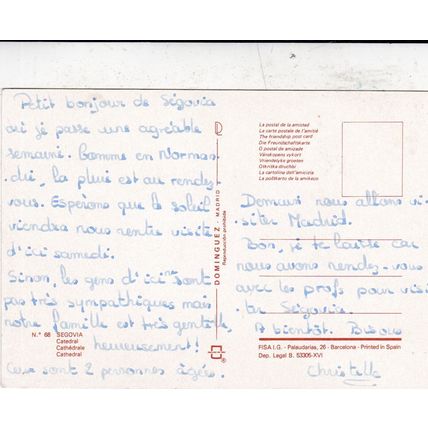 Petit bonjour de Ségovia
où je passe une agréable
semaine. Comme en Norman-
die, la pluie est au rendez
vous. Esperons que le soleil
viendra nous rentre visite
d'ici samedi.
Sinon, les gens d'ici ne sont
pas très sympathiques mais
notre famille est très gentille,
heureusement!
Ce sont 2 personnes agées.
N.° 68 SEGOVIA
Catedral
Cathédrale
Cathedral
DOMINGUEZ MADRID
Reproducción prohibida
La postal de la amistad
La carte postale de l'amitié
The friendship post card
Die Freundschaftskarte
O postal de amizade
Vänskapens vykort
Vriendelyke groeten
Otkritka druzhbi
La cartolina dell'amicizia
La poŝtkarto de la amikeco
Demain nous allons vi-
siter Madrid.
Bon, je te laisse car
nous avons rendez-vous
avec les profs pour visi
ter Ségovie.
A bientôt. Bisous
Christelle
FISA I.G. - Palaudarias, 26 - Barcelona - Printed in Spain
Dep. Legal B. 53305-XVI